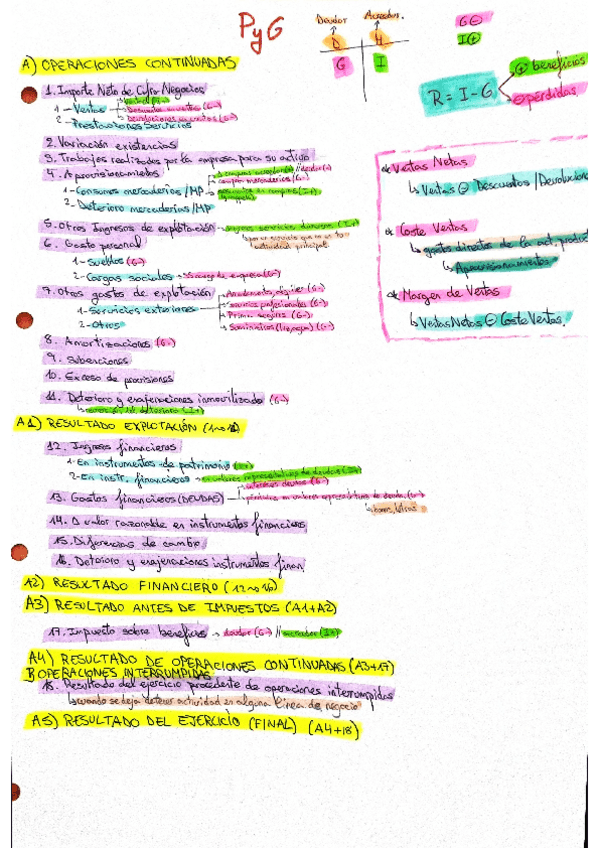 PyG
Deudor
Acreedor.
D
H
G
I
G⊖
I⊕
R = I - G
⊕ beneficios
⊖ pérdidas
A) OPERACIONES CONTINUADAS
1. Importe Neto de Cifra Negocios
1 - Ventas
Descuentos en ventas (G-)
2 - Prestaciones Servicios
Devoluciones en ventas (G-)
2. Variación existencias
3. Trabajos realizados por la empresa para su activo
4. Aprovisionamientos
1 - Consumos mercaderías / MP
2 - Deterioro mercaderías / MP
5. Otros Ingresos de explotación → ingresos servicios diversos (I+)
actividad principal.
6. Gasto personal
1 - Sueldos (G-)
2 - Cargas sociales → SS cargo de empresa (G-)
7. Otros gastos de explotación
Arrendamiento, alquiler (G-)
1 - Servicios exteriores
servicios profesionales (G-)
Primas seguros (G-)
2 - Otros
Suministros (luz, agua) (G-)
8. Amortizaciones (G-)
9. Subvenciones
10. Exceso de provisiones
11. Deterioro y enajenaciones inmovilizado (G-)
A1) RESULTADO EXPLOTACIÓN
12. Ingresos financieros
1 - En instrumentos de patrimonio (I+)
2 - En instr. financieros → en valores representativos de deudas (I+)
intereses deudas (G-)
13. Gastos financieros (DEUDAS)
pérdidas en valores representativos de deuda (G-)
bonos, letras
14. Δ valor razonable en instrumentos financieros
15. Diferencias de cambio
16. Deterioro y enajenaciones instrumentos finan.
A2) RESULTADO FINANCIERO (12→16)
A3) RESULTADO ANTES DE IMPUESTOS (A1+A2)
17. Impuesto sobre beneficios → deudor (G-) // acreedor (I+)
A4) RESULTADO DE OPERACIONES CONTINUADAS (A3+17)
B) OPERACIONES INTERRUMPIDAS
18. Resultado del ejercicio procedente de operaciones interrumpidas
↳ cuando se deja de tener actividad en alguna línea de negocio
A5) RESULTADO DEL EJERCICIO (FINAL) (A4+18)
* Ventas Netas
↳ Ventas ⊖ Descuentos / Devolucione
* Coste Ventas
↳ gastos directos de la act. product
↳ Aprovisionamientos
* Margen de Ventas
↳ Ventas Netas ⊖ Coste Ventas.